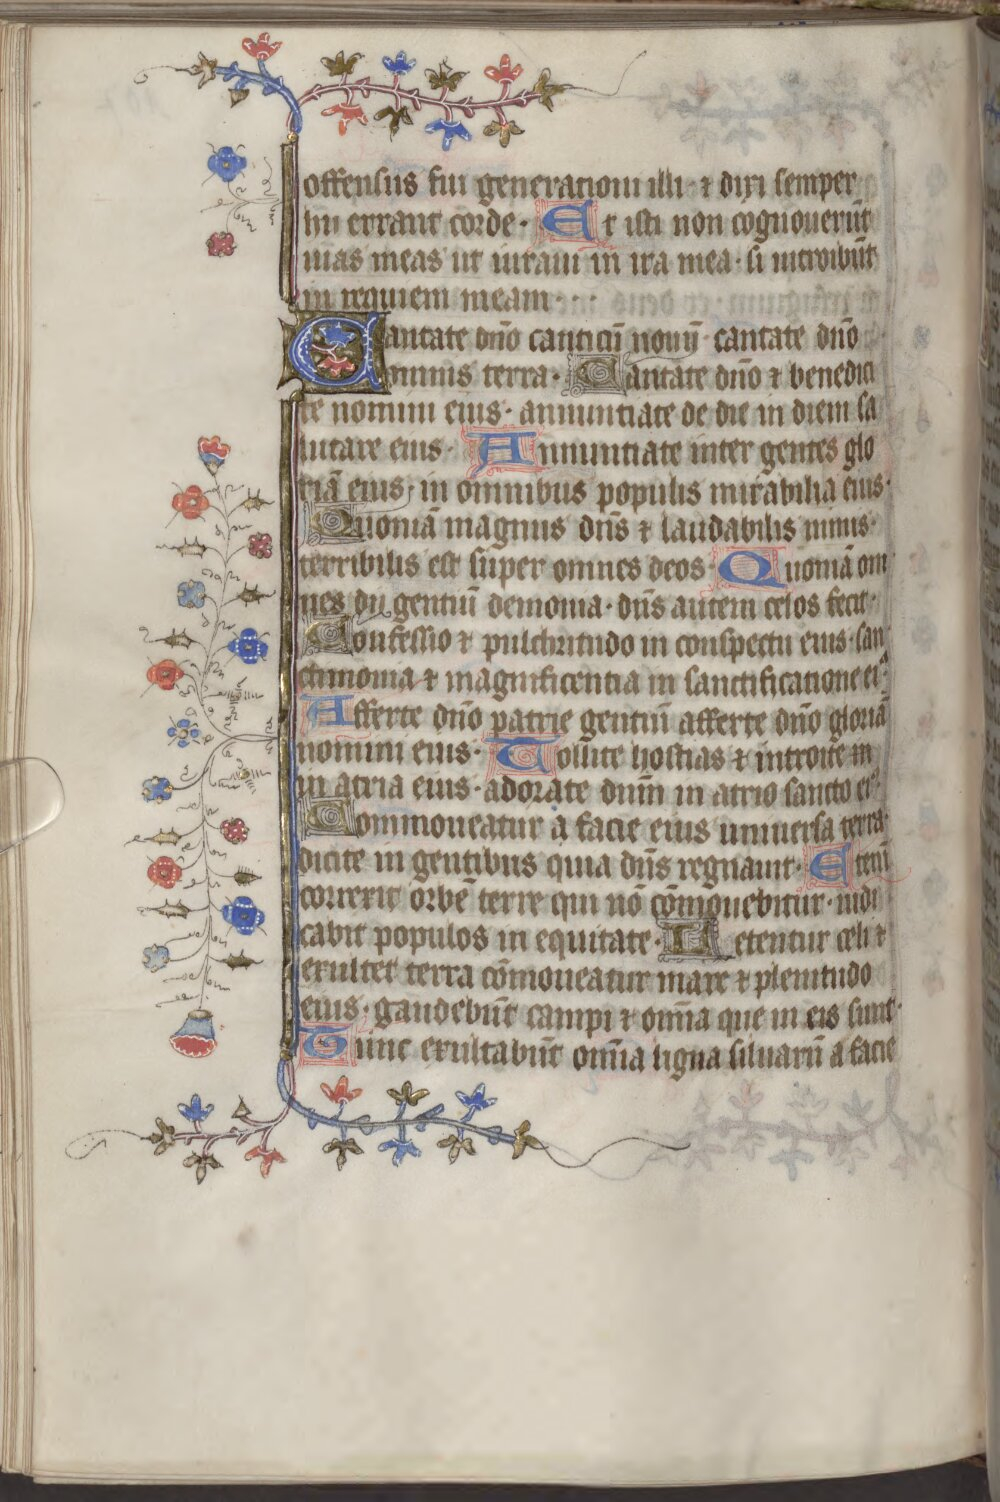 offensus fui generationi illi · ⁊ dixi semper
hii errant corde · Et isti non cognouerūt
uias meas ut iuraui in ira mea · si introibūt
in requiem meam · : ·
Cantate dn̄o canticū nouū · cantate dn̄o
omnis terra · Cantate dn̄o ⁊ benedici
te nomini eius · annuntiate de die in diem sa
lutare eius · Annuntiate inter gentes glo
riā eius, in omnibus populis mirabilia eius ·
Quoniā magnus dn̄s ⁊ laudabilis nimis ·
terribilis est super omnes deos · Quoniā om
nes dij gentiū demonia · dn̄s autem celos fecit ·
Confessio ⁊ pulchritudo in conspectu eius · san
ctimonia ⁊ magnificentia in sanctificatione ei⁹
Afferte dn̄o patrie gentiū afferte dn̄o gloriā
nomini eius · Tollite hostias ⁊ introite in
in atria eius · adorate dnm̄ in atrio sancto ei⁹
Commoueatur a facie eius uniuersa terra ·
dicite in gentibus quia dn̄s regnauit · Etenī
correxit orbē terre qui nō cōmouebitur · iudi
cabit populos in equitate · Letentur celi ⁊
exultet terra cōmoueatur mare ⁊ plenitudo
eius · gaudebūt campi ⁊ om̄ia que in eis sunt ·
Tunc exultabūt om̄ia ligna siluarū a facie